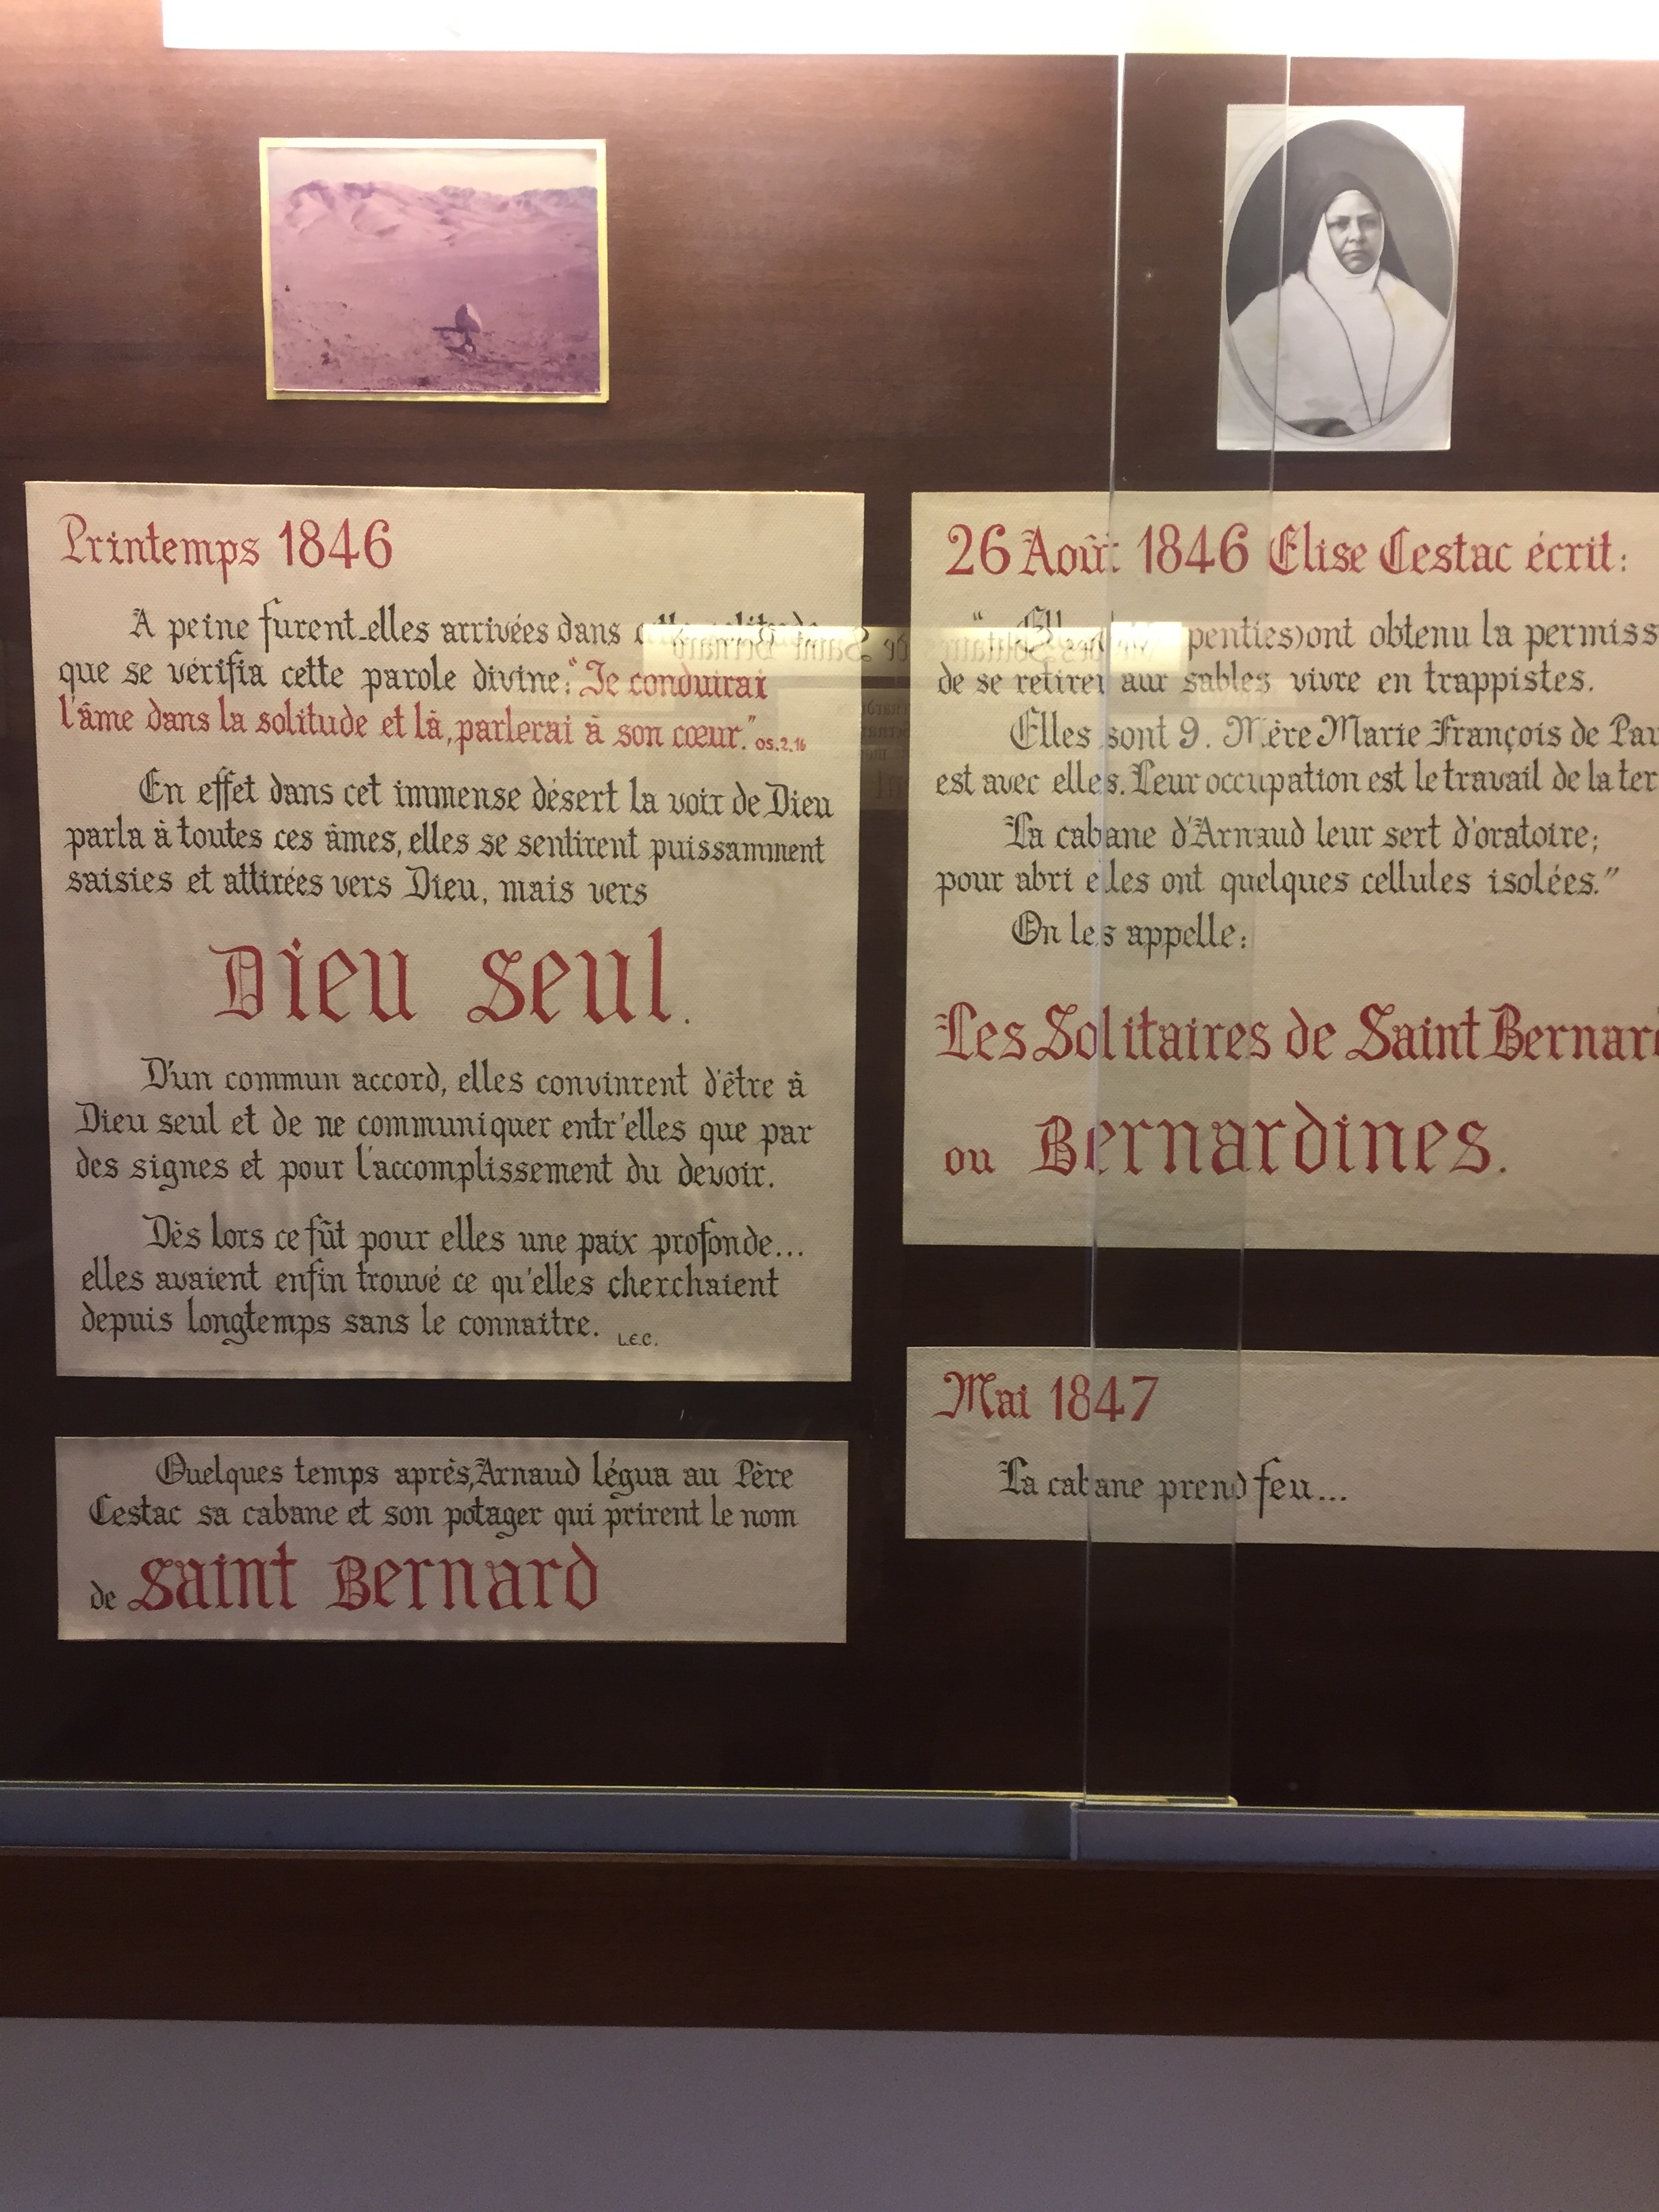 Printemps 1846
A peine furent-elles arrivées dans
que se vérifia cette parole divine: "Je conduirai
l'âme dans la solitude et là, parlerai à son cœur." OS.2.16
En effet dans cet immense désert la voix de Dieu
parla à toutes ces âmes, elles se sentirent puissamment
saisies et attirées vers Dieu, mais vers
Dieu seul.
D'un commun accord, elles convinrent d'être à
Dieu seul et de ne communiquer entr'elles que par
des signes et pour l'accomplissement du devoir.
Dès lors ce fût pour elles une paix profonde...
elles avaient enfin trouvé ce qu'elles cherchaient
depuis longtemps sans le connaitre. L.E.C.
Quelques temps après, Arnaud légua au Père
Cestac sa cabane et son potager qui prirent le nom
de Saint Bernard
26 Août 1846 Elise Cestac écrit:
penties) ont obtenu la permiss
de se retirer aux sables vivre en trappistes.
Elles sont 9. Mère Marie François de Pau
est avec elles. Leur occupation est le travail de la ter
La cabane d'Arnaud leur sert d'oratoire;
pour abri elles ont quelques cellules isolées."
On les appelle:
Les Solitaires de Saint Bernard
ou Bernardines.
Mai 1847
La cabane prend feu...